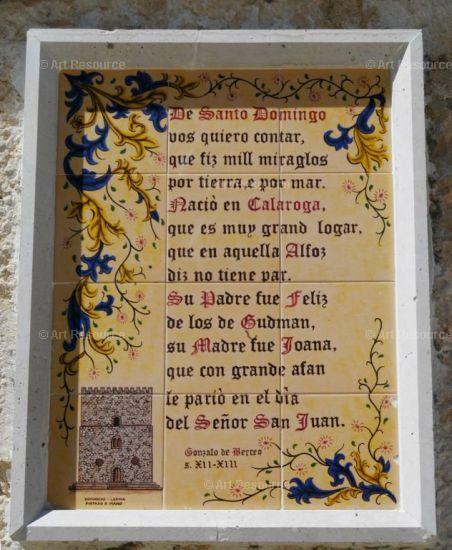 De Santo Domingo
vos quiero contar,
que fiz mill miraglos
por tierra,e por mar.
Naciò en Calaroga,
que es muy grand logar,
que en aquella Alfoz
diz no tiene par.
Su Padre fue Feliz
de los de Gudman,
su Madre fue Joana,
que con grande afan
le pariò en el dìa
del Señor San Juan.
Gonzalo de Berceo
s. XII-XIII
PINTADO A MANO
© Art Resource
© Art Resource
© Art Resource
© Art Resource
© Art Resource
© Art Resource
© Art Resource
© Art Resource
© Art Resource